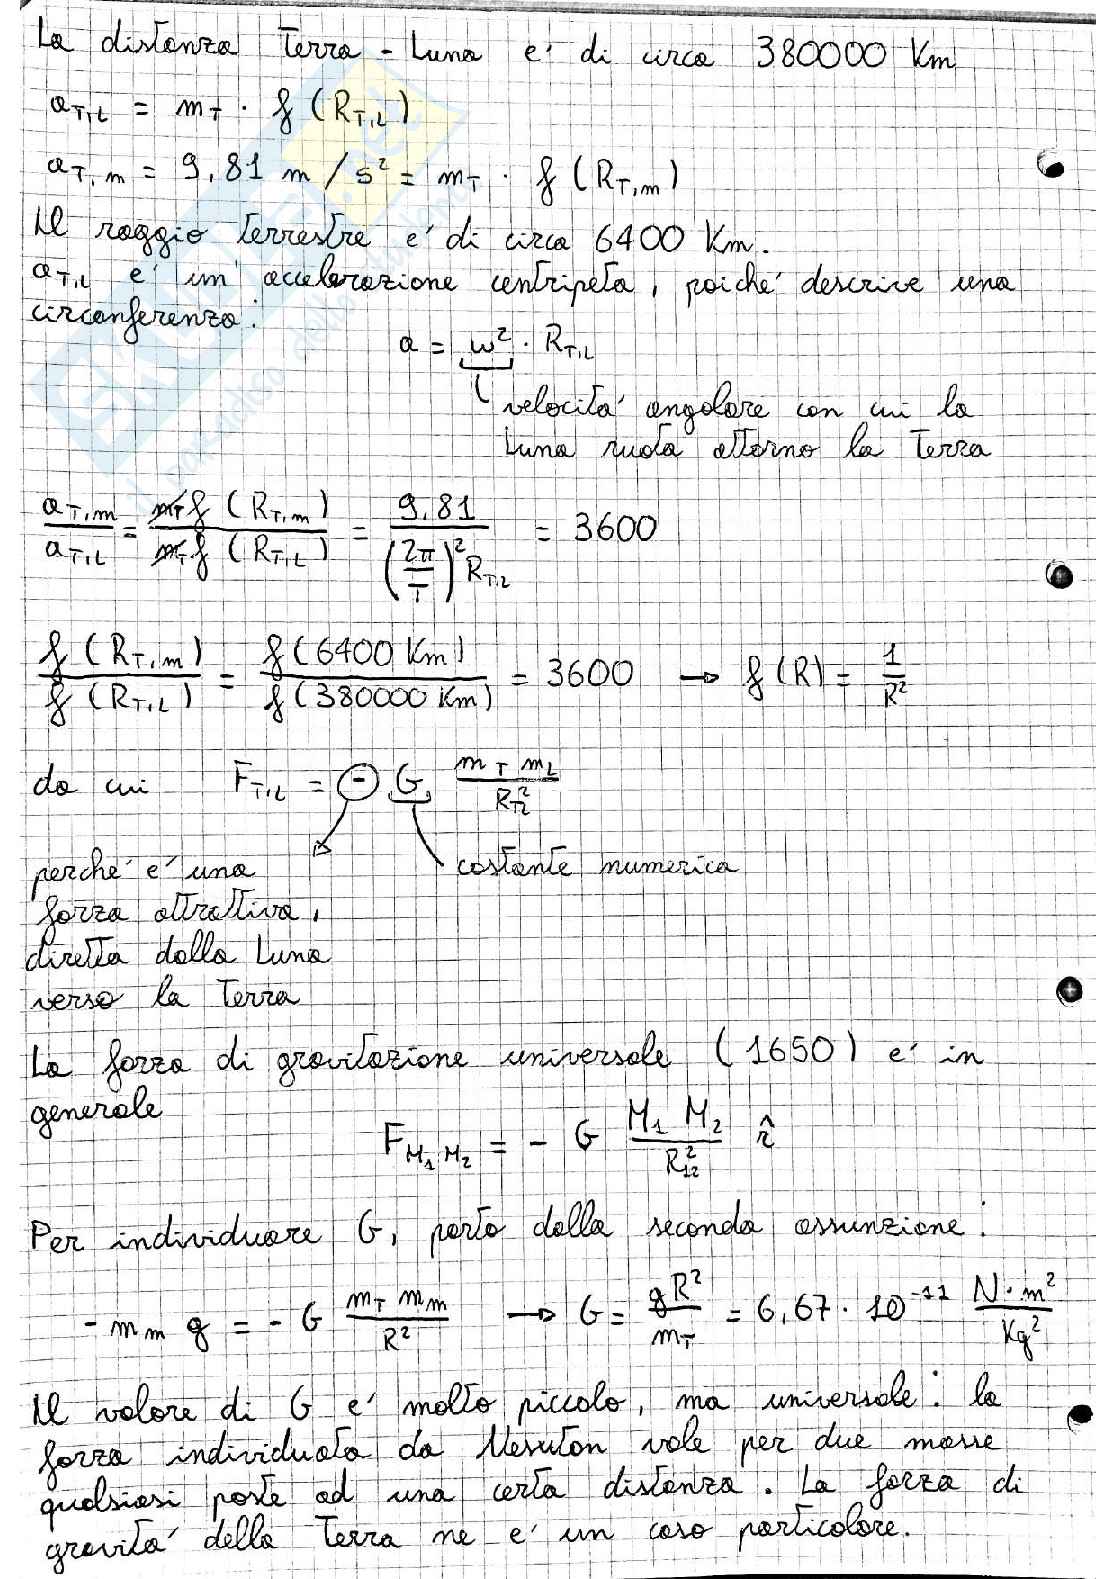 La distanza Terra - Luna e' di circa 380000 Km
a_{T,L} = m_T · f (R_{T,L})
a_{T,m} = 9,81 m / s² = m_T · f (R_{T,m})
Il raggio terrestre e' di circa 6400 Km.
a_{T,L} e' un' accelerazione centripeta, poiche' descrive una
circonferenza:
a = ω² · R_{T,L}
velocita' angolare con cui la
Luna ruota attorno la Terra
a_{T,m} / a_{T,L} = m_T f (R_{T,m}) / m_T f (R_{T,L}) = 9,81 / (2π / T)² R_{T,L} = 3600
f (R_{T,m}) / f (R_{T,L}) = f (6400 Km) / f (380000 Km) = 3600 → f (R) = 1 / R²
da cui F_{T,L} = - G m_T m_L / R_{TL}²
perche' e' una
costante numerica
forza attrattiva,
diretta dalla Luna
verso la Terra
La forza di gravitazione universale (1650) e' in
generale
F_{M₁ M₂} = - G M₁ M₂ / R₁₂² r̂
Per individuare G, parto dalla seconda assunzione:
- m_m g = - G m_T m_m / R² → G = g R² / m_T = 6,67 · 10⁻¹¹ N · m² / Kg²
Il valore di G e' molto piccolo, ma universale: la
forza individuata da Newton vale per due masse
qualsiasi poste ad una certa distanza. La forza di
gravita' della Terra ne e' un caso particolare.